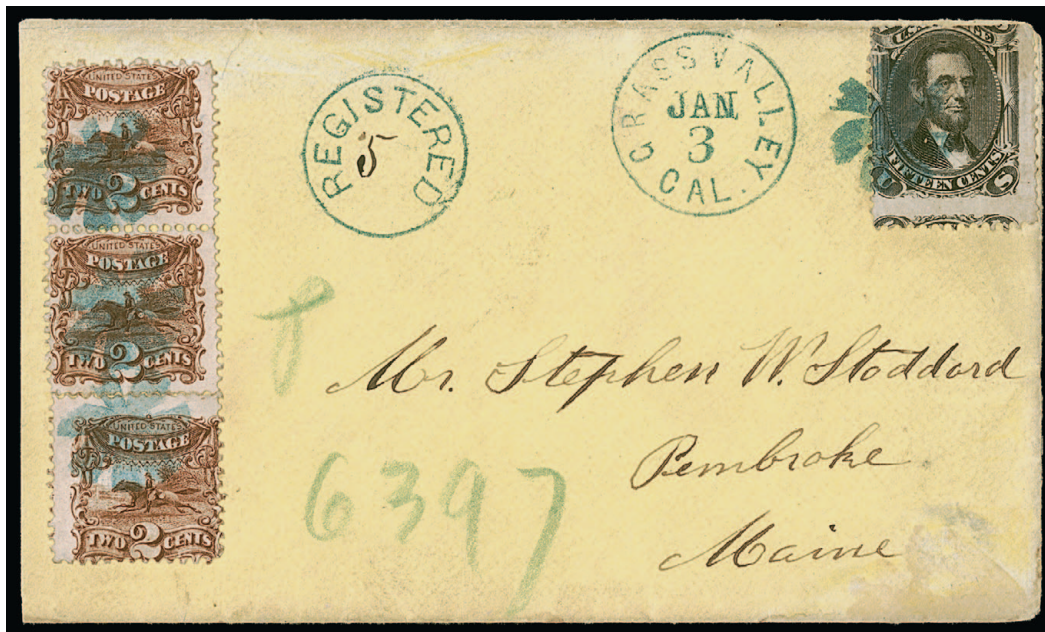 UNITED STATES
POSTAGE
TWO 2 CENTS
UNITED STATES
POSTAGE
TWO 2 CENTS
UNITED STATES
POSTAGE
TWO 2 CENTS
REGISTERED
5
GRASS VALLEY
JAN
3
CAL.
FIFTEEN CENTS
U S
Mr. Stephen W. Stoddard
Pembroke
Maine
6397